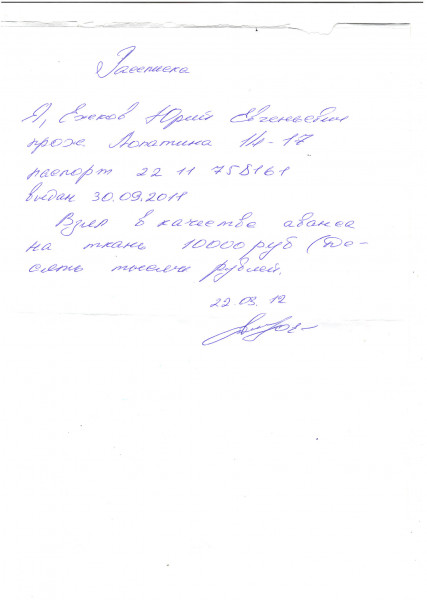 Расписка
Я, Ежков Юрий Евгеньевич
прож. Лопатина 14-17
паспорт 22 11 758161
выдан 30.09.2011
Взял в качестве аванса
на ткань 10000 руб (Де-
сять тысячи рублей.
22.03.12